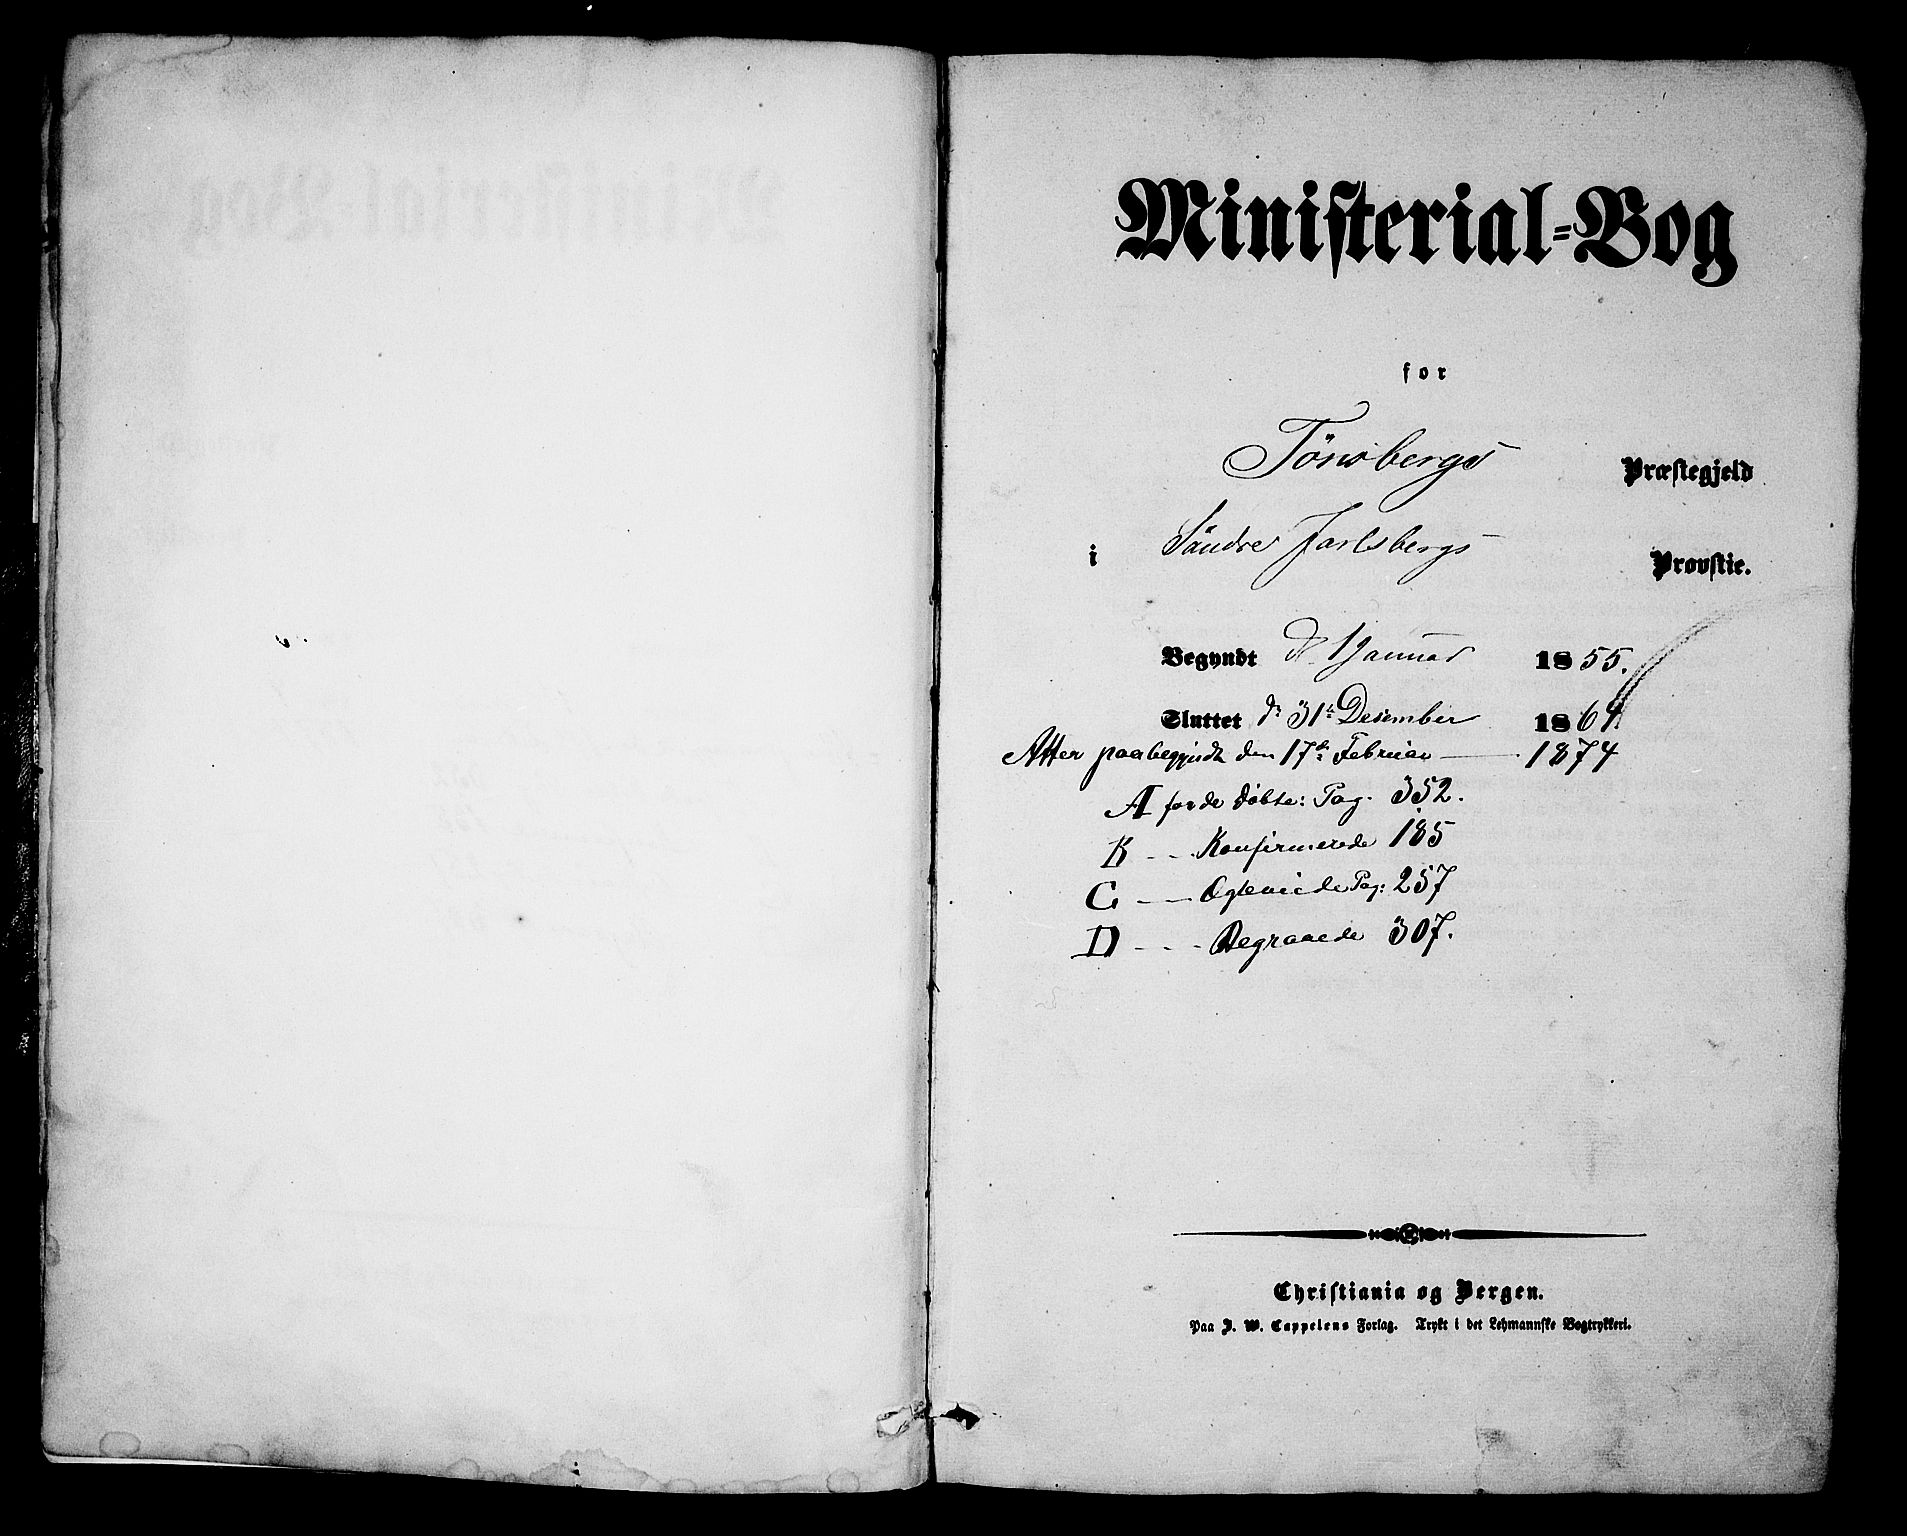 Ministerial-Bog
for
Tönsbergs Præstegjeld
i Söndre Jarlsbergs Provstie.
Begyndt d. 1 Januar 1855.
Sluttet d. 31te Desember 1864
Atter paabegyndt den 17de Februar 1874
A for de Döbte: Pag. 352.
B - - Konfirmerede 185
C - - Egteviede Pag: 257
D - - - Begravede 307.
Christiania og Bergen.
Paa J. W. Cappelens Forlag. Trykt i det Lehmannske Bogtrykkeri.